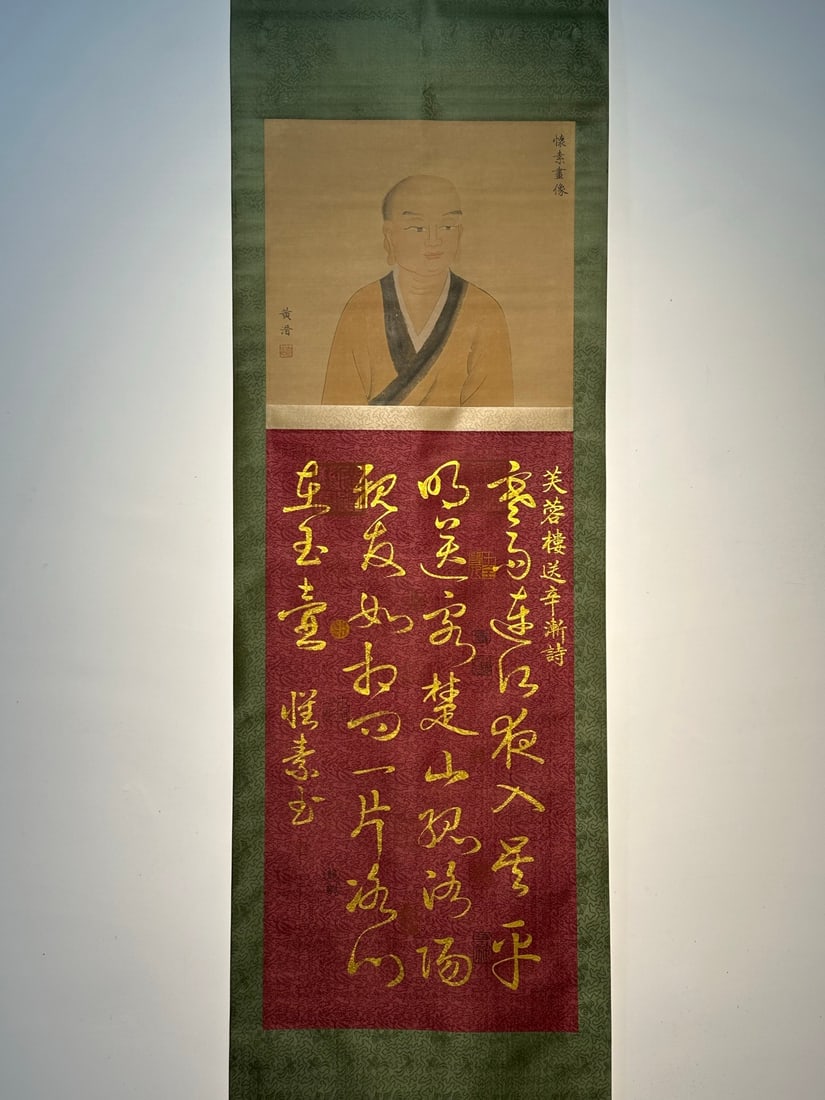 懷素畫像
黃溍
芙蓉樓送辛漸詩
寒雨連江夜入吳平
明送客楚山孤洛陽
親友如相問一片冰心
在玉壺
懷素書